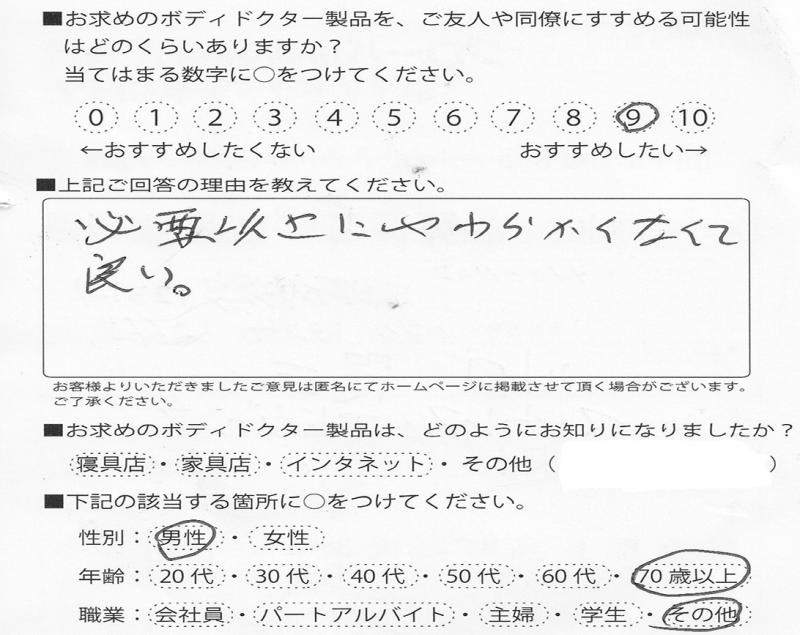 ■お求めのボディドクター製品を、ご友人や同僚にすすめる可能性
はどのくらいありますか？
当てはまる数字に○をつけてください。
0 1 2 3 4 5 6 7 8 9 10
←おすすめしたくない おすすめしたい→
■上記ご回答の理由を教えてください。
必要以上にやわらかくなくて
良い。
お客様よりいただきましたご意見は匿名にてホームページに掲載させて頂く場合がございます。
ご了承ください。
■お求めのボディドクター製品は、どのようにお知りになりましたか？
寝具店・家具店・インタネット・その他（ ）
■下記の該当する箇所に○をつけてください。
性別：男性・女性
年齢：20代・30代・40代・50代・60代・70歳以上
職業：会社員・パートアルバイト・主婦・学生・その他